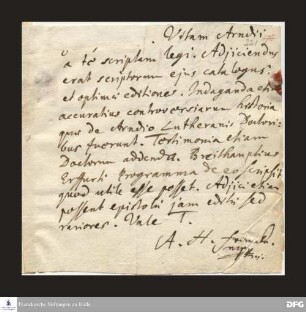 Vitam Arndii
a te scriptam legi. Adjiciendus
erat scriptorum ejus catalogus,
et optima editiones. Indaganda etiam
accuratius controversiarum historia
quae de Arndio Lutheranis Doctori-
bus fuerunt. Testimonia etiam
Doctorum addenda. Breithauptius
Erffurti Programma de eo scripsit
quod utile esse posset. Adjici etiam
possent epistolae jam editae sed
rariores. Vale T.
A. H.
Franckesche Stiftungen zu Halle
DFG